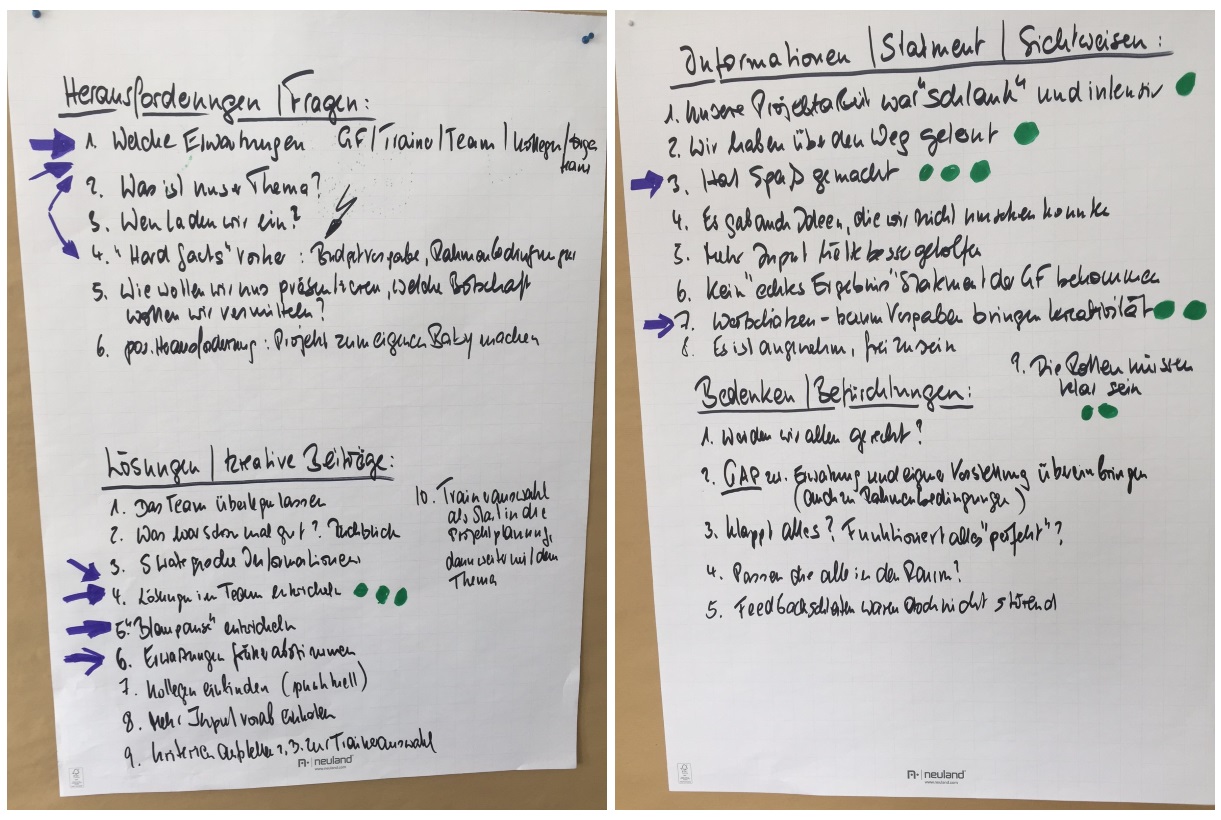 Herausforderungen / Fragen:
1. Welche Erwartungen GF / Trainer / Team / Kollegen / Orga
team
2. Was ist unser Thema?
3. Wen laden wir ein?
4. "Hard facts" vorher: Budgetvorgabe, Rahmenbedingungen
5. Wie wollen wir uns präsentieren, welche Botschaft
wollen wir vermitteln?
6. pos. Herausforderung: Projekt zum eigenen Baby machen
Lösungen / kreative Beiträge:
1. Das Team überlegen lassen
2. Was war schon mal gut? Rückblick
3. Informationen
4. Lösungen im Team entwickeln
5. "Blaupause" entwickeln
6. Erwartungen früher abstimmen
7. Kollegen einbinden (punktuell)
8. Mehr Input vorab einholen
9. Kriterien aufstellen z.B. zur Trainerauswahl
10. Trainerauswahl
als Start in die
Projektplanung,
dann weiter mit dem
Thema
neuland
www.neuland.com
Informationen / Statment / Sichtweisen:
1. Unsere Projektarbeit war "schlank" und intensiv
2. Wir haben über den Weg gelernt
3. Hat Spaß gemacht
4. Es gab auch Ideen, die wir nicht umsetzen konnten
5. Mehr Input hätte besser geholfen
6. Kein "echtes Ergebnis" Statment der GF bekommen
7. Wertschätzen - kaum Vorgaben bringen Kreativität
8. Es ist angenehm, frei zu sein
9. Die Rollen müssen
klar sein
Bedenken / Befürchtungen:
1. Werden wir allen gerecht?
2. GAP zw. Erwartung und eigene Vorstellung übereinbringen
(auch zu Rahmenbedingungen)
3. Klappt alles? Funktioniert alles "perfekt"?
4. Passen die alle in den Raum?
5. Feedbackschleifen waren doch nicht störend
neuland
www.neuland.com